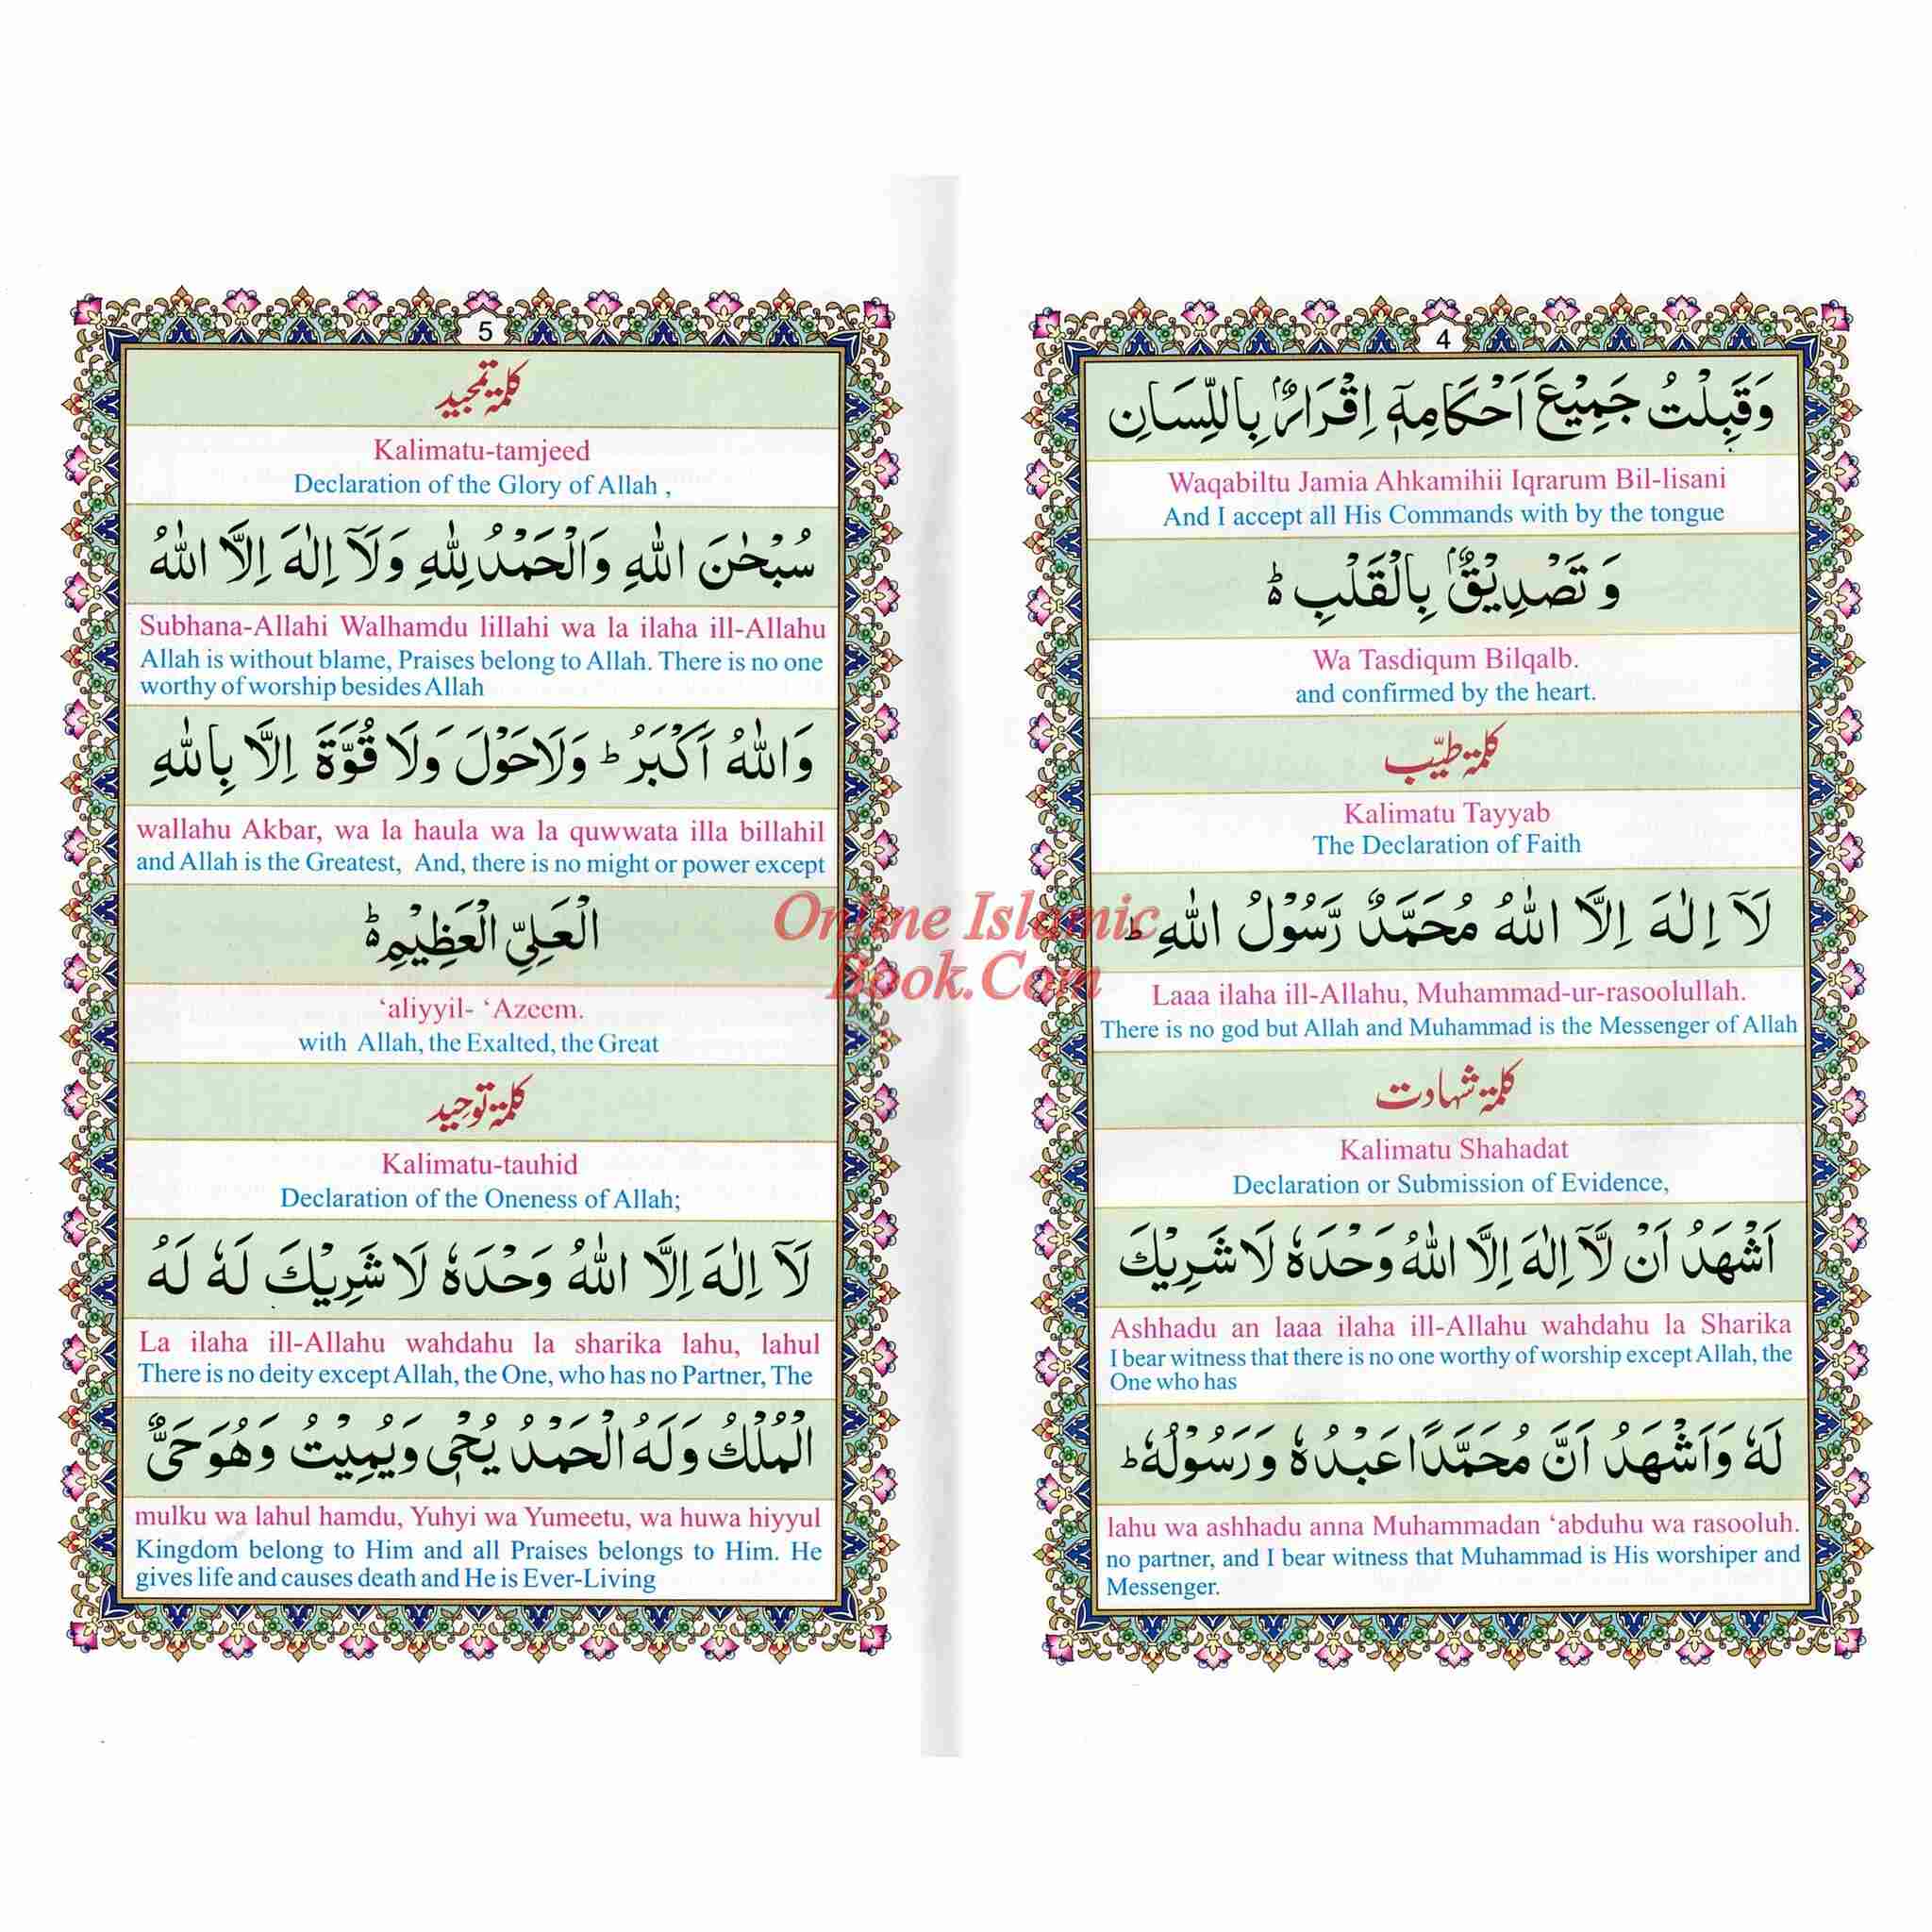 4
وَقَبِلْتُ جَمِيْعَ اَحْكَامِهٖٓ اِقْرَارٌۢ بِاللِّسَانِ
Waqabiltu Jamia Ahkamihii Iqrarum Bil-lisani
And I accept all His Commands with by the tongue
وَ تَصْدِيْقٌۢ بِالْقَلْبِ ؕ
Wa Tasdiqum Bilqalb.
and confirmed by the heart.
کلمۃ طیّب
Kalimatu Tayyab
The Declaration of Faith
لَآ اِلٰهَ اِلَّا اللّٰهُ مُحَمَّدٌ رَّسُوْلُ اللّٰهِ ؕ
Laaa ilaha ill-Allahu, Muhammad-ur-rasoolullah.
There is no god but Allah and Muhammad is the Messenger of Allah
کلمۃ شہادت
Kalimatu Shahadat
Declaration or Submission of Evidence,
اَشْهَدُ اَنْ لَّآ اِلٰهَ اِلَّا اللّٰهُ وَحْدَهٗ لَا شَرِيْكَ
Ashhadu an laaa ilaha ill-Allahu wahdahu la Sharika
I bear witness that there is no one worthy of worship except Allah, the
One who has
لَهٗ وَاَشْهَدُ اَنَّ مُحَمَّدًا عَبْدُهٗ وَرَسُوْلُهٗ ؕ
lahu wa ashhadu anna Muhammadan ‘abduhu wa rasooluh.
no partner, and I bear witness that Muhammad is His worshiper and
Messenger.
5
کلمۃ تمجید
Kalimatu-tamjeed
Declaration of the Glory of Allah ,
سُبْحٰنَ اللّٰهِ وَالْحَمْدُ لِلّٰهِ وَلَآ اِلٰهَ اِلَّا اللّٰهُ
Subhana-Allahi Walhamdu lillahi wa la ilaha ill-Allahu
Allah is without blame, Praises belong to Allah. There is no one
worthy of worship besides Allah
وَاللّٰهُ اَكْبَرُ ؕ وَلَا حَوْلَ وَلَا قُوَّةَ اِلَّا بِاللّٰهِ
wallahu Akbar, wa la haula wa la quwwata illa billahil
and Allah is the Greatest, And, there is no might or power except
الْعَلِيِّ الْعَظِيْمِ ؕ
‘aliyyil- ‘Azeem.
with Allah, the Exalted, the Great
کلمۃ توحید
Kalimatu-tauhid
Declaration of the Oneness of Allah;
لَآ اِلٰهَ اِلَّا اللّٰهُ وَحْدَهٗ لَا شَرِيْكَ لَهٗ لَهُ
La ilaha ill-Allahu wahdahu la sharika lahu, lahul
There is no deity except Allah, the One, who has no Partner, The
الْمُلْكُ وَلَهُ الْحَمْدُ يُحْيٖ وَيُمِيْتُ وَهُوَ حَيٌّ
mulku wa lahul hamdu, Yuhyi wa Yumeetu, wa huwa hiyyul
Kingdom belong to Him and all Praises belongs to Him. He
gives life and causes death and He is Ever-Living
Online Islamic
Book.Com